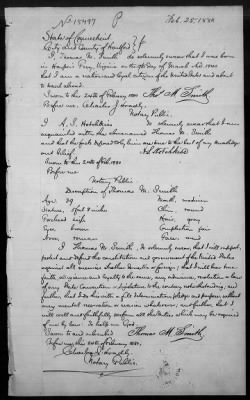 No 13497 P Feb. 25, 1880
State of Connecticut
City and County of Hartford } ss
I, Thomas M. Smith do solemnly swear that I was born
in Harpers Ferry, Virginia on the day of March A.D. 1840
that I am a native and loyal citizen of the United States and about
to travel abroad.
Sworn to this 24th of February 1880 Thos M. Smith
Before me, Charles J.
Notary Public
I A. S. Hotchkiss do solemnly swear that I am
acquainted with the above named Thomas M. Smith
and that the facts deposed to by him are true to the best of my knowledge
and belief.
Sworn to this 24th of Feb. 1880 Hotchkiss
Before me
Notary Public
Description of Thomas M. Smith
Age 39 Mouth, medium
Stature, feet inches Chin, round
Forehead high Hair, gray
Eyes brown Complexion fair
Nose, roman Face, oval
I Thomas M. Smith, do solemnly swear, that I will support,
protect and defend the constitution and government of the United States
against all enemies whether domestic or foreign; that I will bear true
faith, allegiance and loyalty to the same, any ordinance, resolution or law
of any State Convention or Legislature to the contrary notwithstanding, and
further, that I do this with a full determination, pledge and purpose without
any mental reservation or evasion whatsoever, and further that I
will well and faithfully perform all the duties which may be required
of me by law. So help me God.
Sworn to and subscribed Thomas M. Smith
Before me, this 24th of February 1880.
Charles J.
Notary Public.